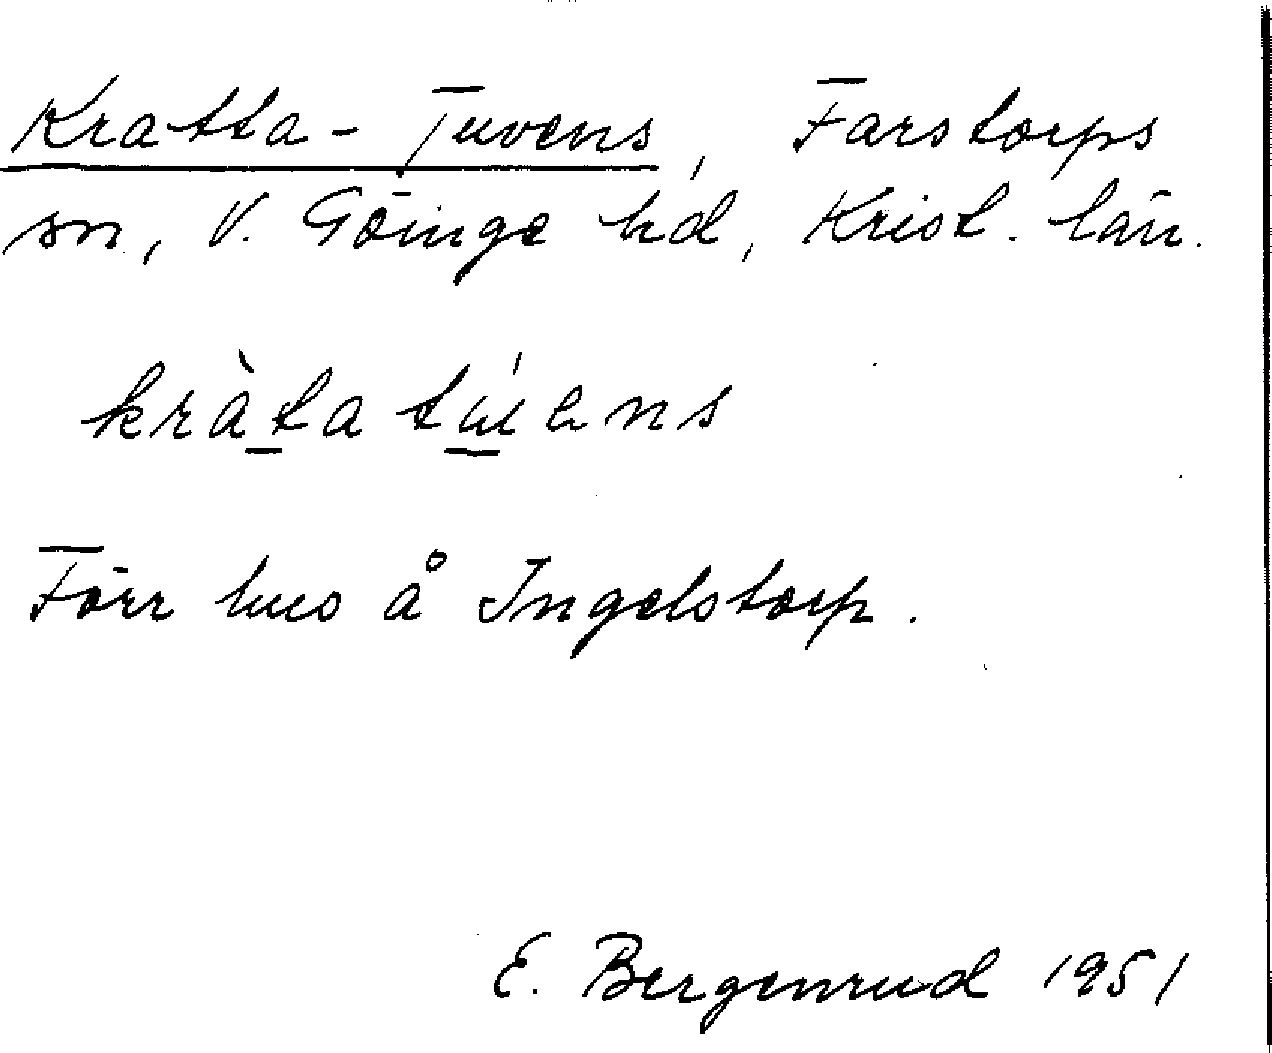 Kratta-Tuvens, Farstorps
sn, V. Göinge hd, Krist. län.
kràtatúens
Förr hus å Ingelstorp.
E. Bergenrud 1951